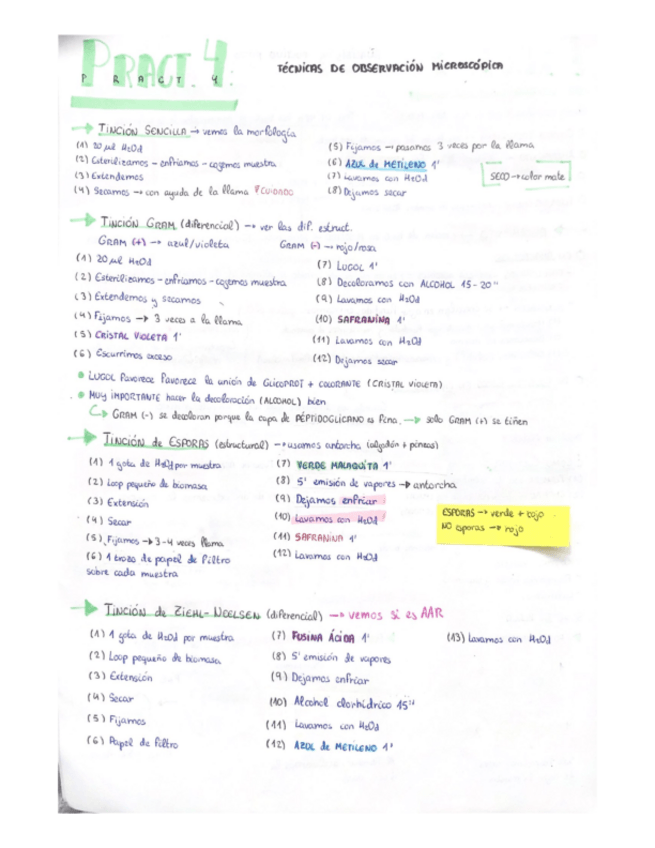 PRACT. 4:
P R A C T. 4
TÉCNICAS DE OBSERVACIÓN MICROSCÓPICA
TINCIÓN SENCILLA → vemos la morfología
(1) 20 µl H2Od
(2) Esterilizamos - enfriamos - cogemos muestra
(3) Extendemos
(4) Secamos → con ayuda de la llama !CUIDADO
(5) Fijamos → pasamos 3 veces por la llama
(6) AZUL de METILENO 1'
(7) Lavamos con H2Od
(8) Dejamos secar
SECO → color mate
TINCIÓN GRAM (diferencial) → ver las dif. estruct.
GRAM (+) → azul/violeta GRAM (-) → rojo/rosa
(1) 20 µl H2Od
(2) Esterilizamos - enfriamos - cogemos muestra
(3) Extendemos y secamos
(4) Fijamos → 3 veces a la llama
(5) CRISTAL VIOLETA 1'
(6) Escurrimos exceso
(7) LUGOL 1'
(8) Decoloramos con ALCOHOL 15-20''
(9) Lavamos con H2Od
(10) SAFRANINA 1'
(11) Lavamos con H2Od
(12) Dejamos secar
• LUGOL Favorece Favorece la unión de GLICOPROT + COLORANTE (CRISTAL VIOLETA)
• MUY IMPORTANTE hacer la decoloración (ALCOHOL) bien
↳ GRAM (-) se decoloran porque la capa de PÉPTIDOGLICANO es fina. → solo GRAM (+) se tiñen
TINCIÓN de ESPORAS (estructural) → usamos antorcha (algodón + pinzas)
(1) 1 gota de H2Od por muestra
(2) Loop pequeño de biomasa
(3) Extensión
(4) Secar
(5) Fijamos → 3-4 veces llama
(6) 1 trozo de papel de filtro
sobre cada muestra
(7) VERDE MALAQUITA 1'
(8) 5' emisión de vapores → antorcha
(9) Dejamos enfriar
(10) Lavamos con H2Od
(11) SAFRANINA 1'
(12) Lavamos con H2Od
ESPORAS → verde + rojo
NO esporas → rojo
TINCIÓN de ZIEHL-NEELSEN (diferencial) → vemos si es AAR
(1) 1 gota de H2Od por muestra
(2) Loop pequeño de biomasa
(3) Extensión
(4) Secar
(5) Fijamos
(6) Papel de filtro
(7) FUSINA ÁCIDA 1'
(8) 5' emisión de vapores
(9) Dejamos enfriar
(10) Alcohol clorhídrico 15''
(11) Lavamos con H2Od
(12) AZUL de METILENO 1'
(13) Lavamos con H2Od